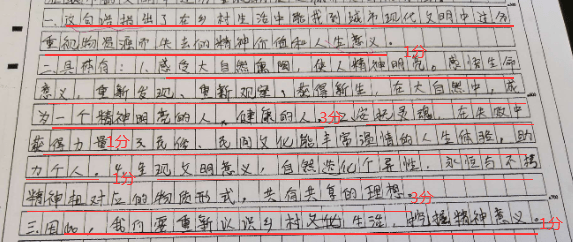 一、这句话指出了在乡村生活中能找到城市现代文明中过分
重视物质源而失去的精神价值和人生意义。1分
二、具体有:1.感受大自然 使人精神明亮。感悟生命
意义,重新发现、重新观察,获得新生,在大自然中,成
为一个精神明亮的人,健康的人。3分2.安抚灵魂,在失败中
获得力量1分3.民俗、民间文化能丰富温情的人生体验,助
力个人。4.呈现文明意义,自然造化个异性,永恒与不朽1分
精神相对应的物质形式,共有共享的理想。2分
三、因此,我们要重新认识乡村文化生活,把握精神意义。1分